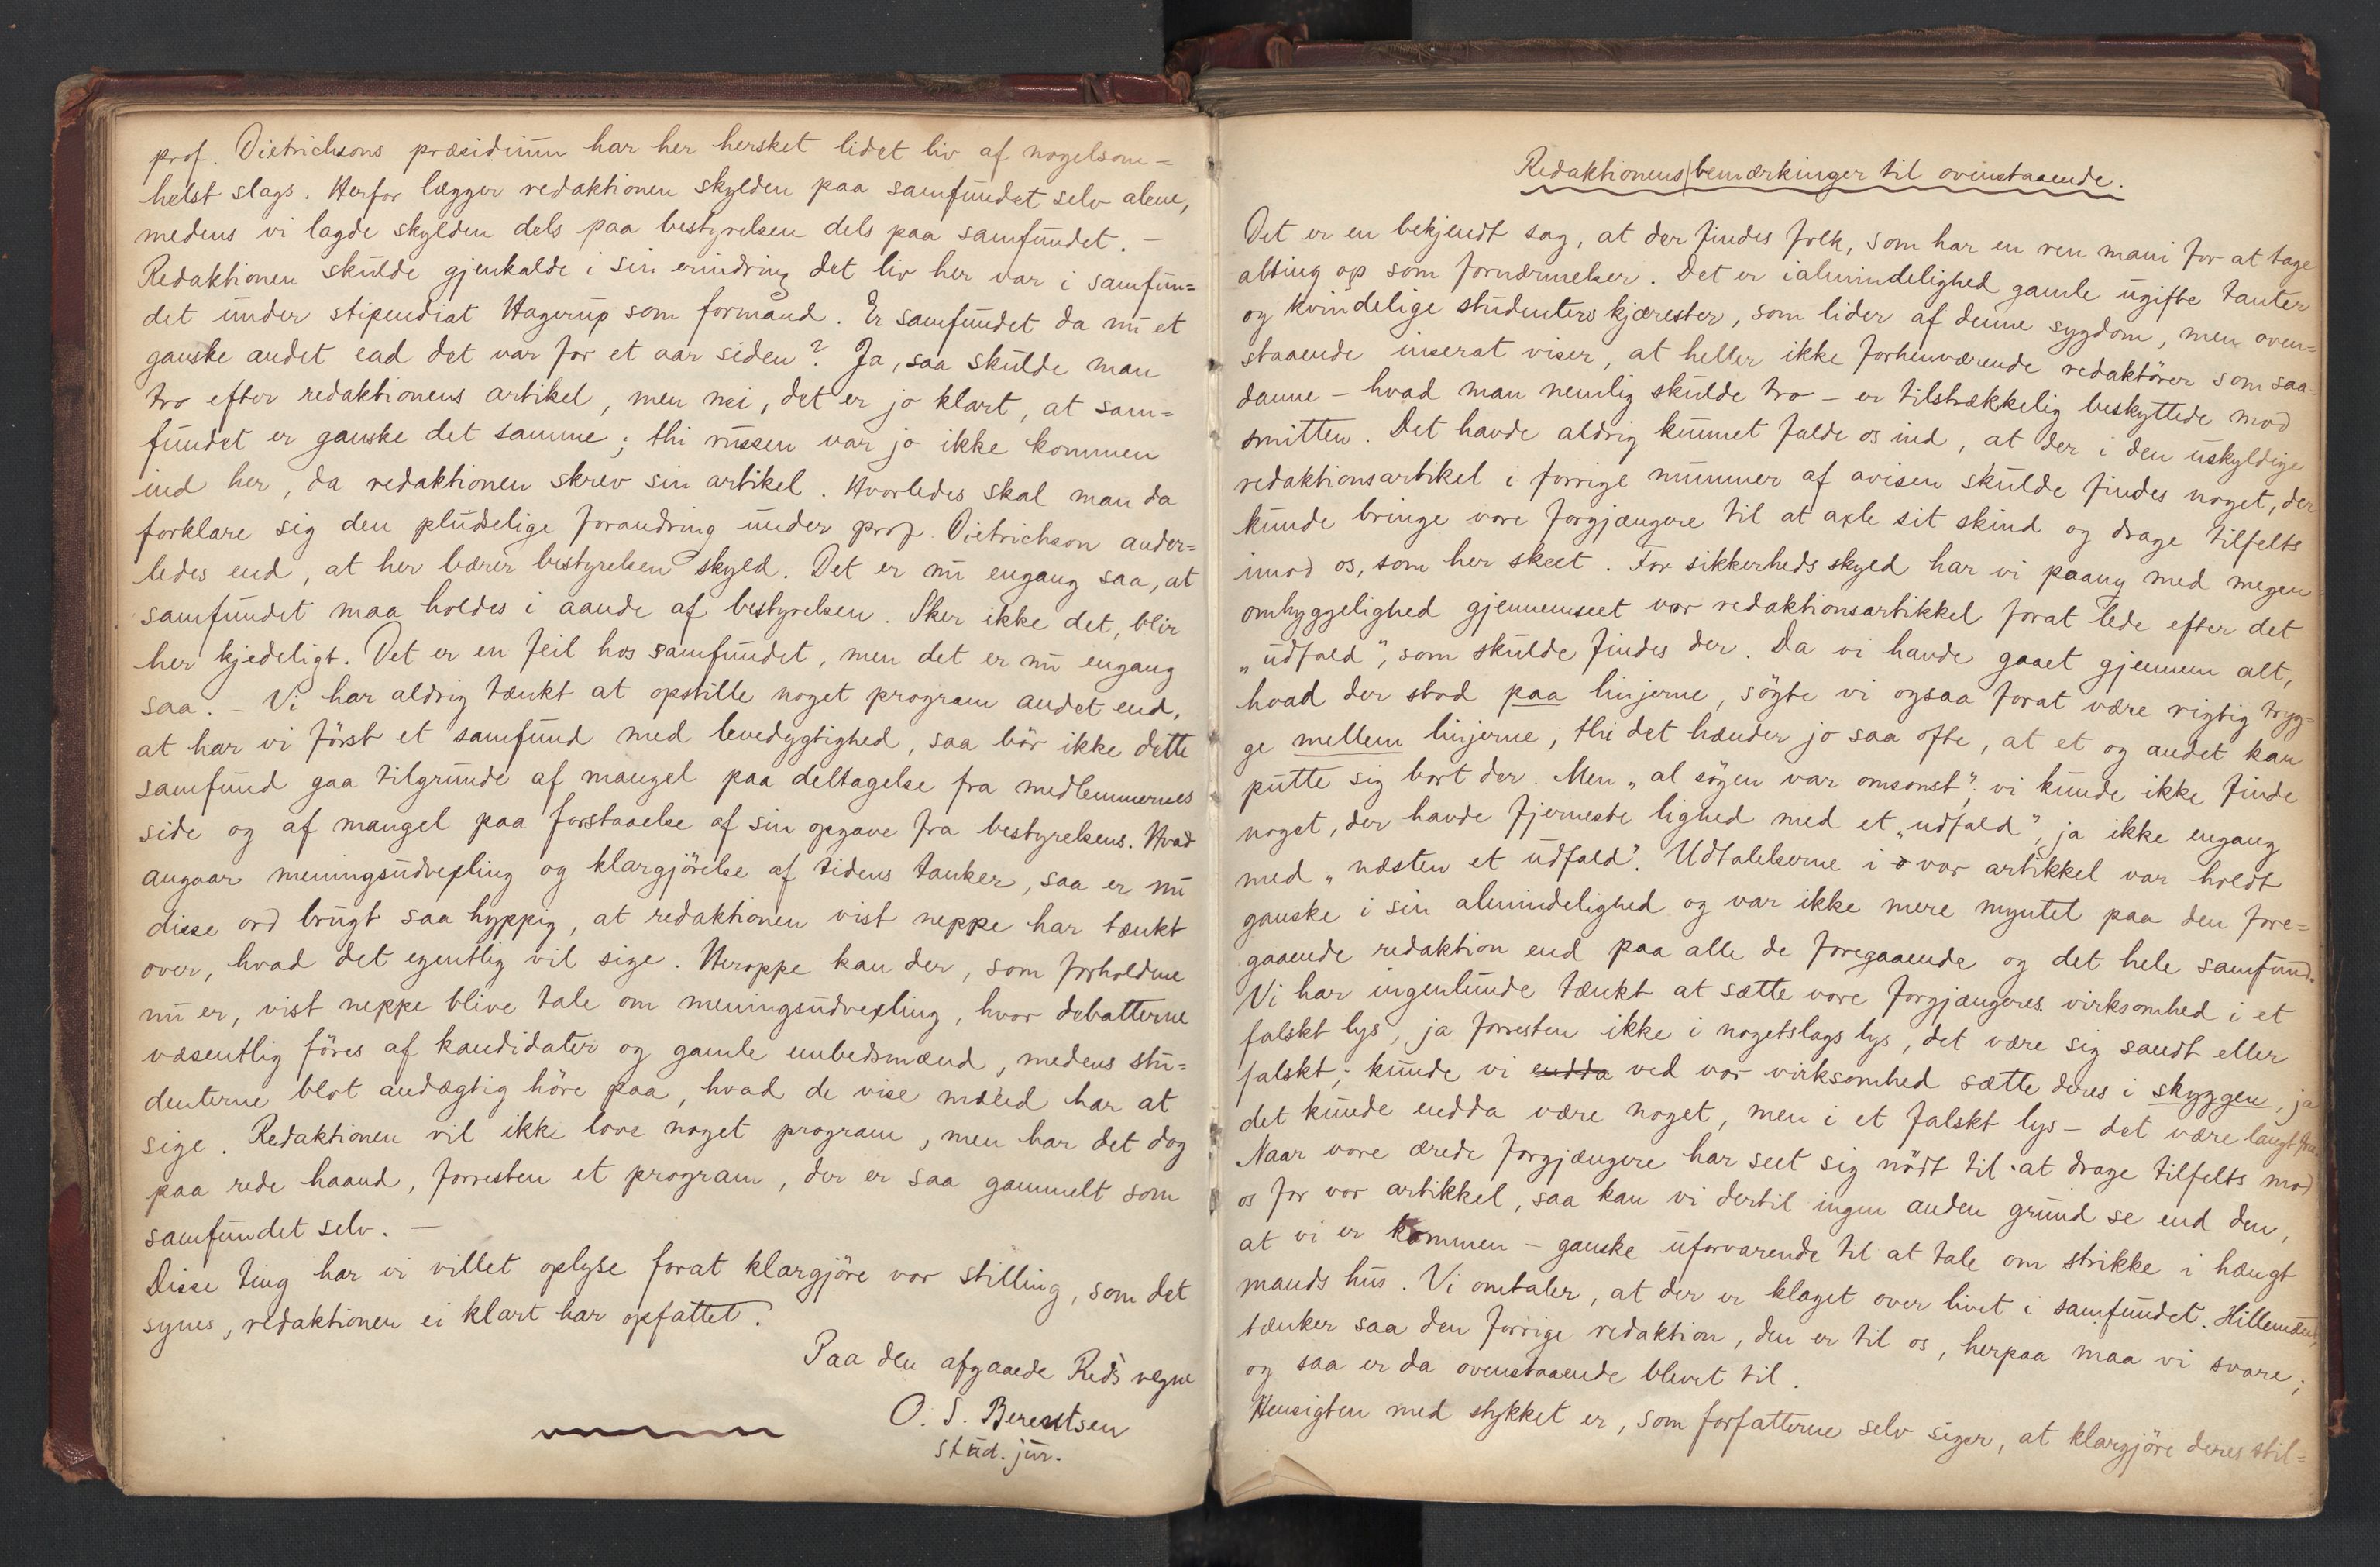 prof. Dietrichsons præsidium har her hersket lidet liv af nogelsom=
helst slags. Herfor lægger redaktionen skylden paa samfundet selv alene,
medens vi lagde skylden dels paa bestyrelsen dels paa samfundet. —
Redaktionen skulde gjenkalde i sin erindring det liv her var i samfun=
det under stipendiat Hagerup som formand. Er samfundet da nu et
ganske andet ead det var for et aar siden? Ja, saa skulde man
tro efter redaktionens artikel, men nei, det er jo klart, at sam=
fundet er ganske det samme; thi russen var jo ikke kommen
ind her, da redaktionen skrev sin artikel. Hvorledes skal man da
forklare sig den pludselige forandring under prof. Dietrichson ander=
ledes end, at her bærer bestyrelsen skyld. Det er nu engang saa, at
samfundet maa holdes i aande af bestyrelsen. Sker ikke det, blir
her kjedeligt. Det er en feil hos samfundet, men det er nu engang
saa. — Vi har aldrig tænkt at opstille noget program andet end,
at har vi först et samfund med levedygtighed, saa bör ikke dette
samfund gaa tilgrunde af mangel paa deltagelse fra medlemmernes
side og af mangel paa forstaaelse af sin opgave fra bestyrelsens. Hvad
angaar meningsudvexling og klargjörelse af tidens tanker, saa er nu
disse ord brugt saa hyppig, at redaktionen vist neppe har tænkt
over, hvad det egentlig vil sige. Heroppe kan der, som forholdene
nu er, vist neppe blive tale om meningsudvexling, hvor debatterne
væsentlig föres af kandidater og gamle embedsmænd, medens stu=
denterne blot andægtig höre paa, hvad de vise mænd har at
sige. Redaktionen vil ikke love noget program, men har det dog
paa rede haand, forresten et program, der er saa gammelt som
samfundet selv. —
Disse ting har vi villet oplyse forat klargjöre vor stilling, som det
synes, redaktionen ei klart har opfattet.
Paa den afgaaede Red's vegne
O. S. Berentsen
stud. jur.
Redaktionens bemærkinger til ovenstaaende.
Det er en bekjendt sag, at der findes folk, som har en ren mani for at tage
alting op som fornærmelser. Det er ialmindelighed gamle ugifte tanter
og kvindelige studenters kjærester, som lider af denne sygdom, men oven=
staaende inserat viser, at heller ikke forhenværende redaktörer som saa=
danne – hvad man nemlig skulde tro – er tilstrækkelig beskyttede mod
smitten. Det havde aldrig kunnet falde os ind, at der i den uskyldige
redaktionsartikel i forrige nummer af avisen skulde findes noget, der
kunde bringe vore forgjængere til at axle sit skind og drage tilfelts
imod os, som her skeet. For sikkerheds skyld har vi paany med megen
omhyggelighed gjennemseet vor redaktionsartikkel forat lede efter det
„udfald", som skulde findes der. Da vi havde gaaet gjennem alt,
hvad der stod paa linjerne, sögte vi ogsaa forat være rigtig tryg=
ge mellem linjerne; thi det hænder jo saa ofte, at et og andet kan
putte sig bort der. Men „al sögen var omsonst"; vi kunde ikke finde
noget, der havde fjerneste lighed med et „udfald", ja ikke engang
med „næsten et udfald". Udtalelserne i vor artikkel var holdt
ganske i sin almindelighed og var ikke mere myntet paa den fore=
gaaende redaktion end paa alle de foregaaende og det hele samfund.
Vi har ingenlunde tænkt at sætte vore forgjængeres virksomhed i et
falskt lys, ja forresten ikke i nogetslags lys, det være sig sandt eller
falskt; kunde vi endda ved vor virksomhed sætte deres i skyggen, ja
det kunde endda være noget, men i et falskt lys – det være langt fra.
Naar vore ærede forgjængere har seet sig nödt til at drage tilfelts mod
os for vor artikkel, saa kan vi dertil ingen anden grund se end den,
at vi er kommen – ganske uforvarende til at tale om strikke i hængt
mands hus. Vi omtaler, at der er klaget over livet i samfundet. Hillemænd,
tænker saa den forrige redaktion, den er til os, herpaa maa vi svare;
og saa er da ovenstaaende blevet til.
Hensigten med stykket er, som forfatterne selv siger, at klargjöre deres stil=